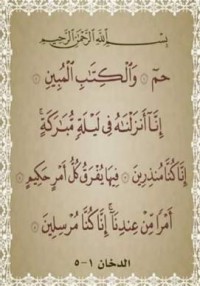 بِسْمِ ٱللَّهِ ٱلرَّحْمَٰنِ ٱلرَّحِيمِ
حمٓ ۝ وَٱلْكِتَٰبِ ٱلْمُبِينِ ۝
إِنَّآ أَنزَلْنَٰهُ فِى لَيْلَةٍ مُّبَٰرَكَةٍ ۚ
إِنَّا كُنَّا مُنذِرِينَ ۝ فِيهَا يُفْرَقُ كُلُّ أَمْرٍ حَكِيمٍ ۝
أَمْرًا مِّنْ عِندِنَآ ۚ إِنَّا كُنَّا مُرْسِلِينَ ۝
الدخان ١-٥